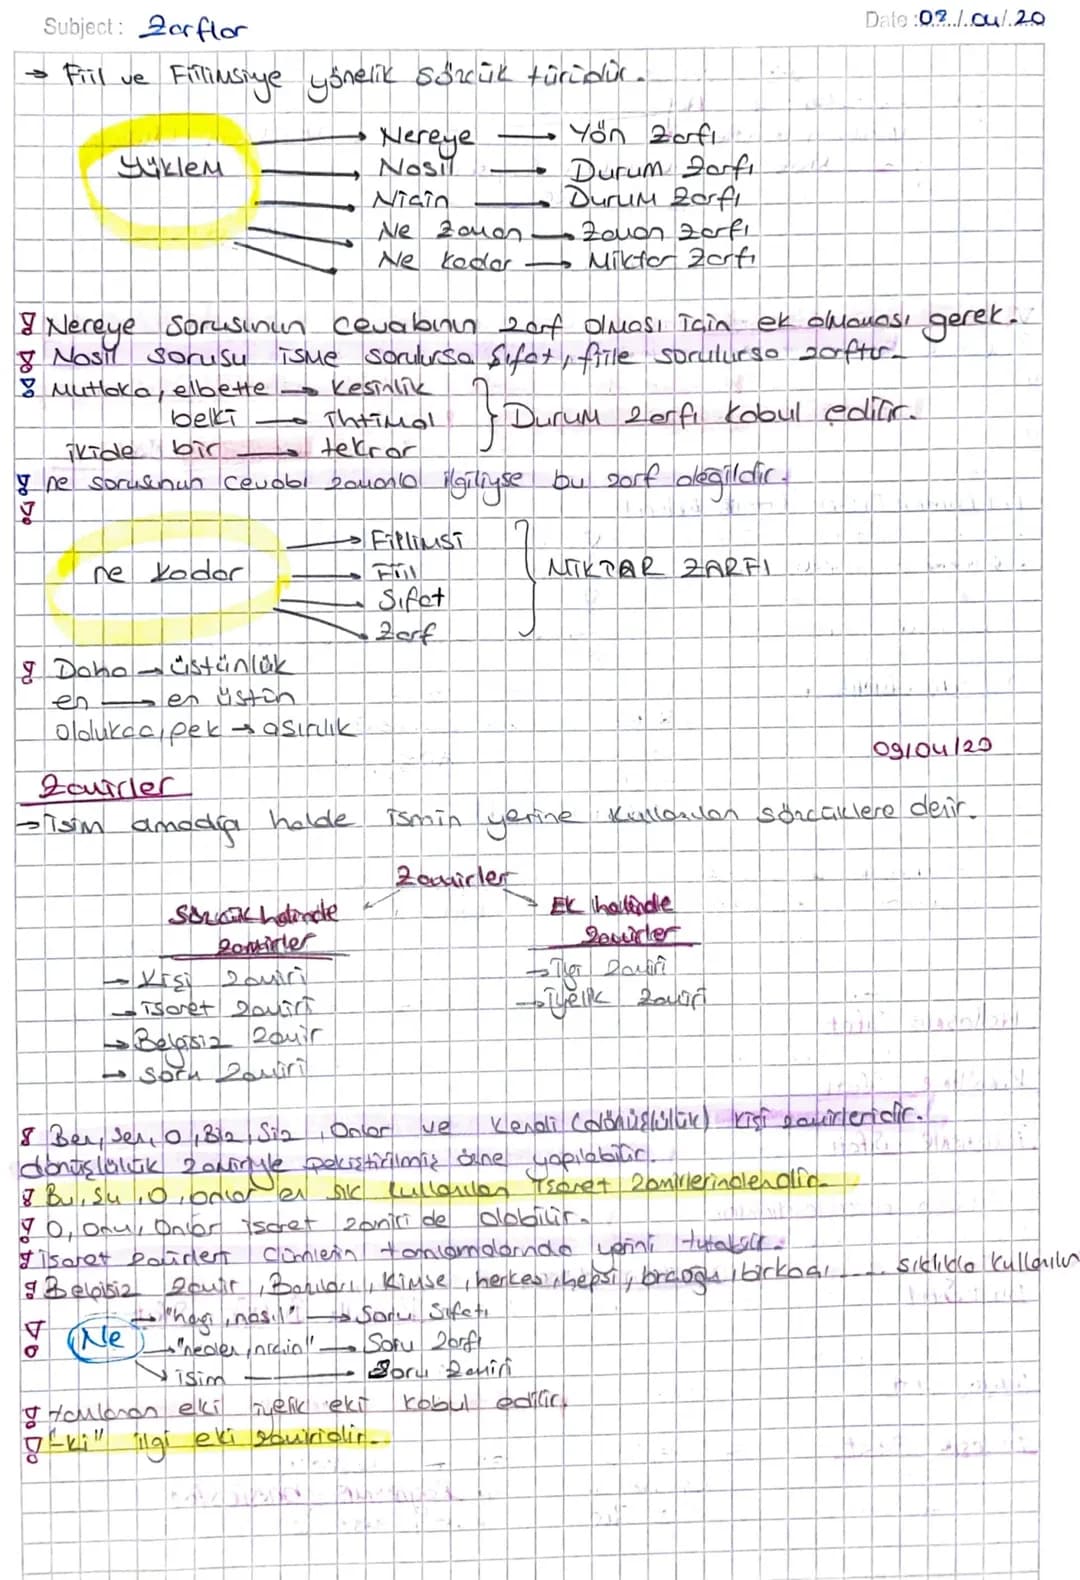 Subject: Zarflar
Date: 02/04/20
→ Fiil ve Fiilimsiye yönelik sözcük türüdür.
Yüklem
→ Nereye → Yön Zarfı
→ Nasıl → Durum Zarfı
→ Niçin → Durum Zarfı
→ Ne Zaman → Zaman Zarfı
→ Ne kadar → Miktar Zarfı
Nereye sorusunun cevabının zarf olması için ek olmaması gerek.
Nasıl sorusu isme sorulursa Sıfat, fiile sorulursa zarftır.
Mutlaka, elbette → Kesinlik
belki → ihtimal } Durum Zarfı kabul edilir.
ikide bir → tekrar
ne sorusunun cevabı zamanla ilgiliyse bu zarf değildir.
ne kadar
→ Fiilimsi
→ Fiil
→ Sıfat
→ Zarf
MİKTAR ZARFI
Daha → üstünlük
en → en üstün
oldukça, pek → aşırılık
09/04/20
Zamirler
→ isim olmadığı halde ismin yerine kullanılan sözcüklere denir.
Zamirler
Sözcük halinde zamirler
→ Kişi zamiri
→ işaret zamiri
→ Belgisiz zamir
→ Soru zamiri
Ek halinde zamirler
→ İlgi zamiri
→ iyelik zamiri
Ben, Sen, O, Biz, Siz, Onlar ve Kendi (dönüşlülük) kişi zamirleridir.
dönüşlülük zamiriyle pekiştirilmiş özne yapılabilir.
Bu, Şu, O, onlar en sık kullanılan işaret zamirlerindendir.
O, Onu, Onlar işaret zamiri de olabilir.
işaret zamirleri tamlamalarında yerini tutabilir.
Belgisiz zamir, Bazıları, Kimse, herkes, hepsi, birçoğu, birkaçı ... sıklıkla kullanılır
Ne
→ "hangi, nasıl" → Soru Sıfatı
→ "neden, niçin" → Soru Zarfı
→ isim → Soru Zamiri
tamlanan eki iyelik eki kabul edilir.
"-ki" ilgi eki zamiridir.